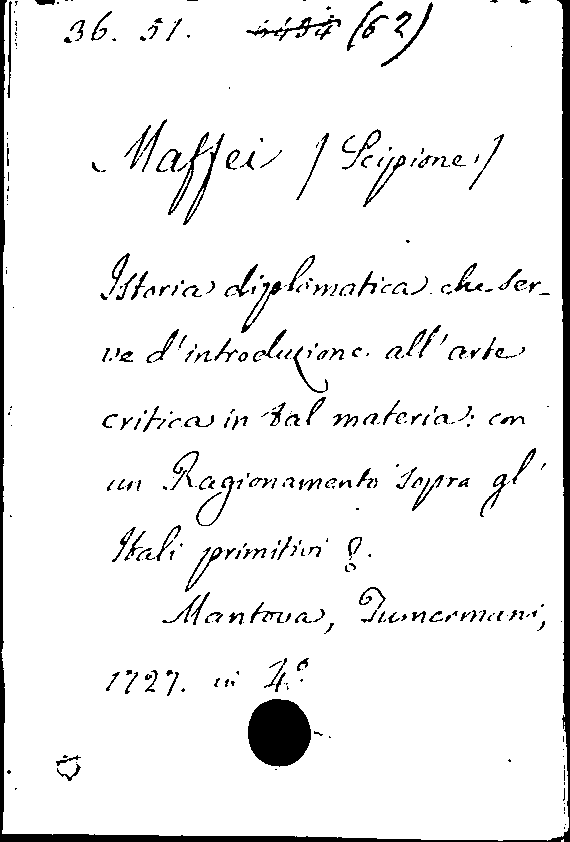 36. 51. (62)
Maffei / Scipione /
Istoria diplomatica che ser-
ve d'introduzione all'arte
critica in tal materia: con
un Ragionamento sopra gl'
Itali primitivi &.
Mantova, Tumermani,
1727. in 4.º